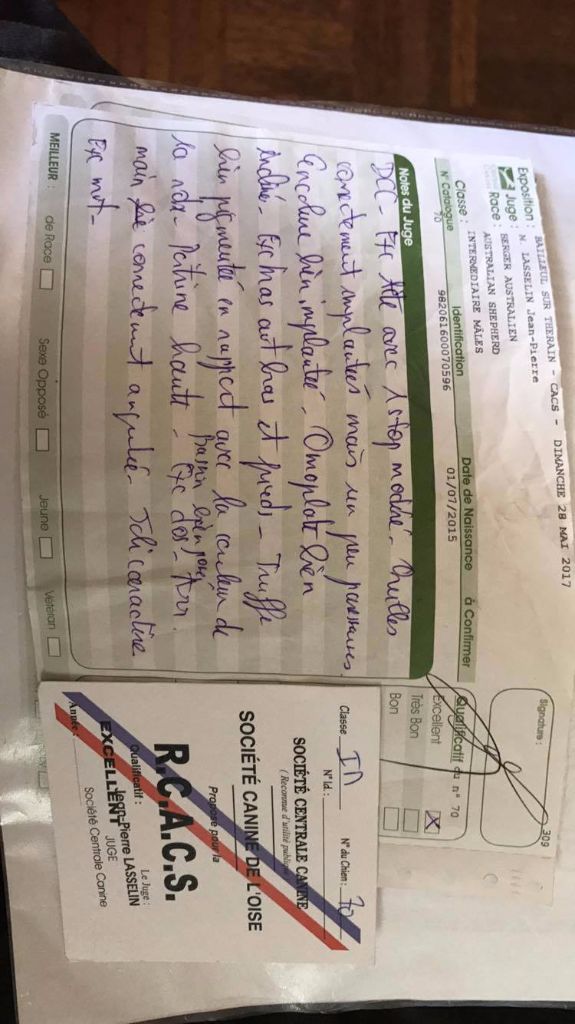 BAILLEUL SUR THERAIN - CACS - DIMANCHE 28 MAI 2017
Exposition :
Juge : M. LASSELIN Jean-Pierre
Race : BERGER AUSTRALIEN
AUSTRALIAN SHEPHERD
Classe : INTERMEDIAIRE MALES
N° Catalogue Identification Date de Naissance à Confirmer
70 982061600070596 01/07/2015
Signature :
309
Qualificatif du n° 70
Excellent X
Très Bon
Bon
Notes du Juge
DCC - Exc tête avec 1 stop modéré - Oreilles
correctement implantées mais un peu paresseuses
Encolure bien implantée - Omoplate bien
Exc has aut bas et pieds - Truffe
bien pigmentée en rapport avec la couleur de
la robe - Poitrine haute - Exc dos - Arr.
Bassin bien
main lié correctement angulé - Joli caractère
Exc mvt -
MEILLEUR : de Race Sexe Opposé Jeune Vétéran
Classe : IN N° du Chien : 70
N° Id. :
SOCIÉTÉ CENTRALE CANINE
(Reconnue d'utilité publique)
SOCIÉTÉ CANINE DE L'OISE
Propose pour la
R.C.A.C.S.
Qualificatif : Le Juge :
EXCELLENT Jean-Pierre LASSELIN
JUGE
Année : Société Centrale Canine